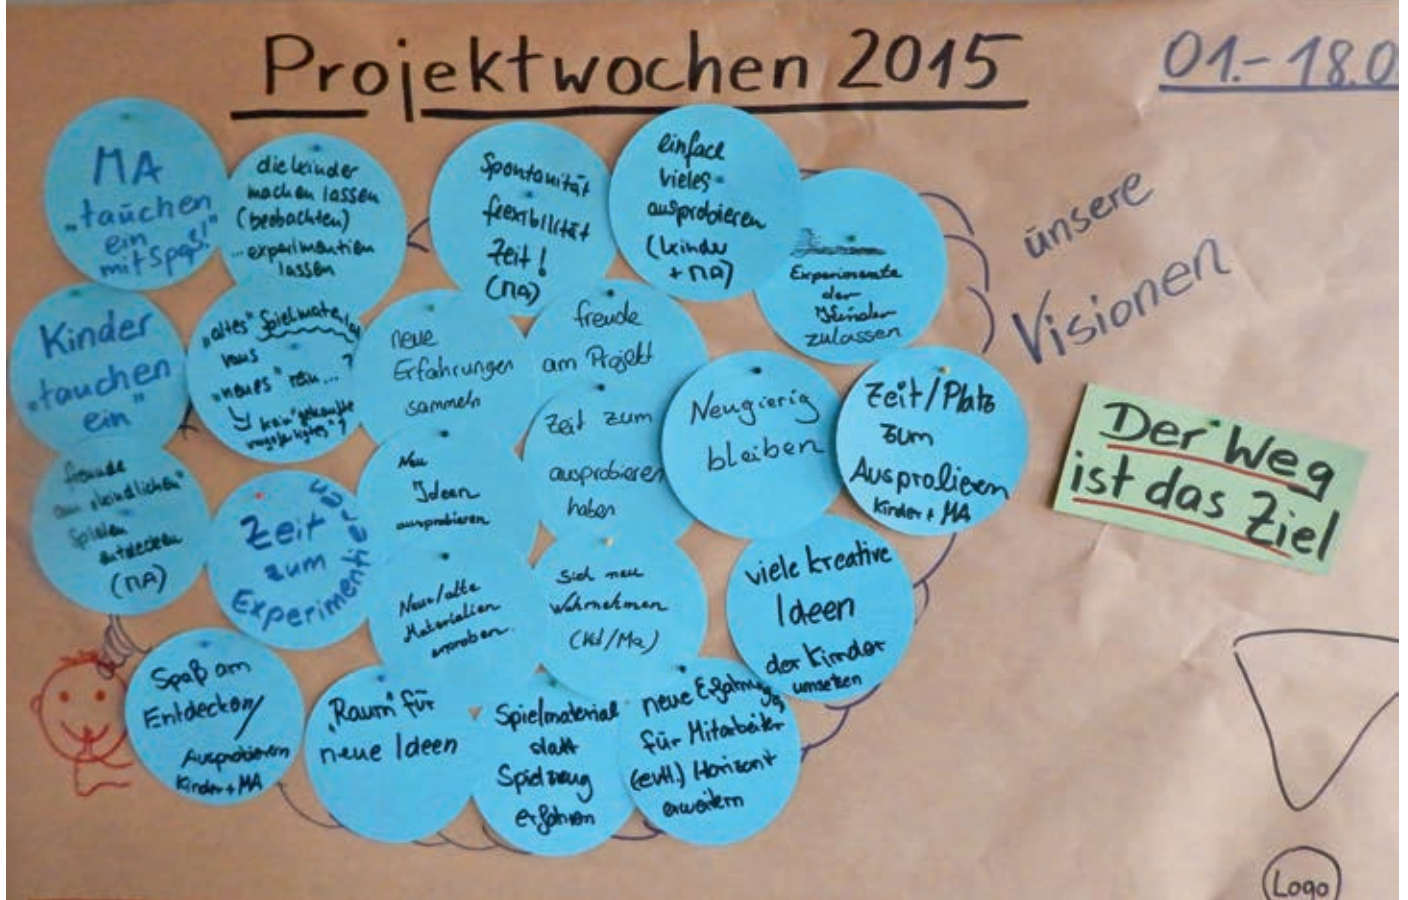 Projektwochen 2015
01.-18.0
MA
"tauchen
ein
mit Spaß!"
die kinder
machen lassen
(beobachten)
... experimentieren
lassen
Spontanität
flexibilität
Zeit!
(MA)
einfach
vieles
ausprobieren
(kinder
+ MA)
Experimente
der
Kinder
zulassen
unsere
Visionen
Kinder
"tauchen
ein"
"altes" Spielmaterial
raus
"neues" rein...?
kein "gekauftes
neue
Erfahrungen
sammeln
freude
am Projekt
Zeit zum
ausprobieren
haben
Neugierig
bleiben
Zeit/Platz
zum
Ausprobieren
Kinder + MA
Der Weg
ist das Ziel
freude
am kindlichen
Spielen
entdecken
(MA)
Zeit
zum
Experimentieren
Neu
Ideen
ausprobieren
Neue/alte
Materialien
erproben.
Sich neu
Wahrnehmen
(Kd/Ma)
viele kreative
Ideen
der Kinder
umsetzen
Spaß am
Entdecken/
Ausprobieren
Kinder + MA
"Raum" für
neue Ideen
Spielmaterial
statt
Spielzeug
erfahren
neue Erfahrung
für Mitarbeiter
(evtl.) Horizont
erweitern
Logo